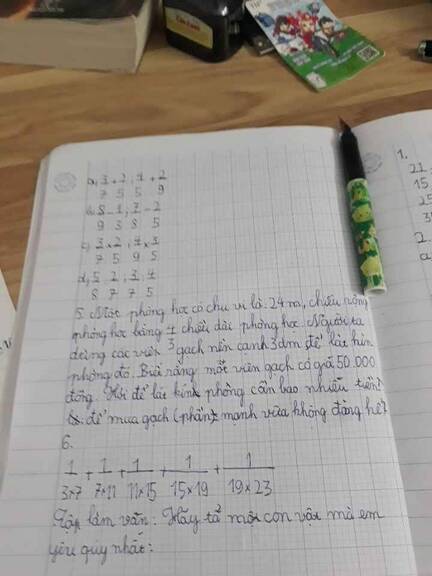 a, 3/7 + 2/5 ; 4/5 + 2/9
b, 8/9 - 1/3 ; 7/8 - 2/5
c, 3/7 × 2/5 ; 4/9 × 3/5
d, 5/8 2/7 ; 3/7 4/5
5. Một phòng học có chu vi là 24 m, chiều rộng
phòng học bằng 1/3 chiều dài phòng học. Người ta
dùng các viên gạch nền cạnh 3dm để lát kín
phòng đó. Biết rằng mỗi viên gạch có giá 50.000
đồng. Hỏi để lát kín phòng cần bao nhiêu tiền
để mua gạch (phần mạch vữa không đáng kể)
6.
1/3×7 + 1/7×11 + 1/11×15 + 1/15×19 + 1/19×23
Tập làm văn: Hãy tả một con vật mà em
yêu quý nhất:
1.
21
15
25
2.
a